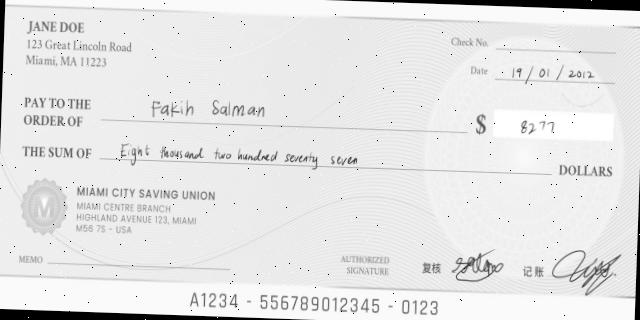 JANE DOE
123 Great Lincoln Road
Miami, MA 11223
Check No.
Date 19/01/2012
PAY TO THE
ORDER OF Fakih Salman
$ 8277
THE SUM OF Eight thousand two hundred seventy seven DOLLARS
M
MIAMI CITY SAVING UNION
MIAMI CENTRE BRANCH
HIGHLAND AVENUE 123, MIAMI
M56 7S - USA
MEMO
AUTHORIZED
SIGNATURE
复核
记账
A1234 - 556789012345 - 0123